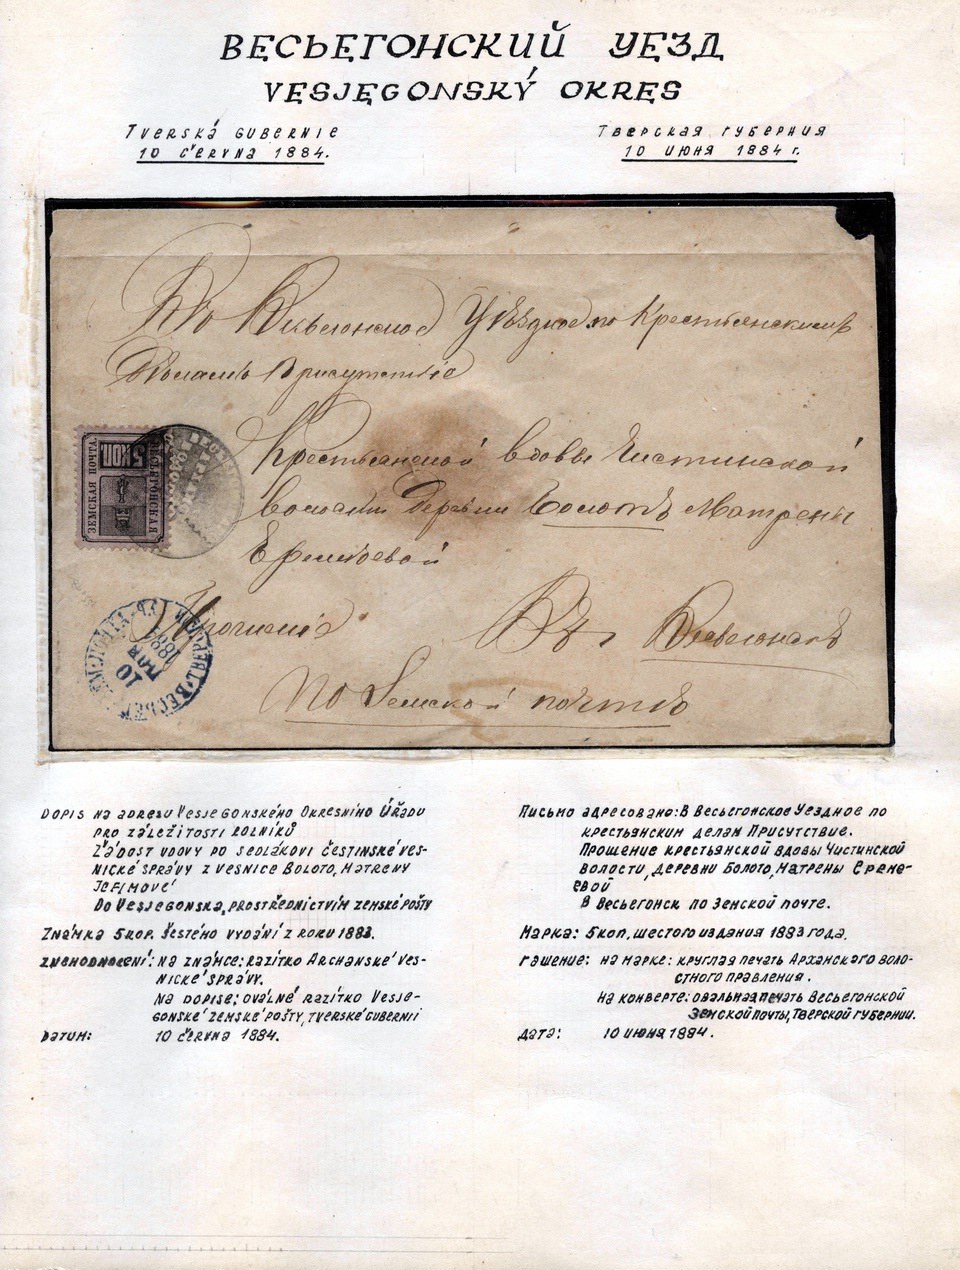 ВЕСЬЕГОНСКИЙ УЕЗД
VESJEGONSKÝ OKRES
TVERSKÁ GUBERNIE
10 ČERVNA 1884.
ТВЕРСКАЯ ГУБЕРНИЯ
10 ИЮНЯ 1884 г.
Въ Весьегонское Уѣздное по Крестьянскимъ
Дѣламъ Присутствіе
Крестьянской вдовы Чистинской
волости деревни Болотъ Матрены
Еремѣевой
Прошеніе
Въ г. Весьегонскъ
По Земской почтѣ
5 КОП
ЗЕМСКАЯ ПОЧТА.
ВЕСЬЕГОНСКАЯ
10
МАЯ
1884
DOPIS NA ADRESU VESJEGONSKÉHO OKRESNÍHO ÚŘADU
PRO ZÁLEŽITOSTI ROLNÍKŮ
ŽÁDOST VDOVY PO SEDLÁKOVI ČESTINSKÉ VES-
NICKÉ SPRÁVY Z VESNICE BOLOTO, MATRENY
JEFIMOVÉ
DO VESJEGONSKA, PROSTŘEDNICTVÍM ZEMSKÉ POŠTY
ZNÁMKA 5 KOP. ŠESTÉHO VYDÁNÍ Z ROKU 1883.
ZNEHODNOCENÍ: NA ZNÁMCE: RAZÍTKO ARCHANSKÉ VES-
NICKÉ SPRÁVY.
NA DOPISE: OVÁLNÉ RAZÍTKO VESJE-
GONSKÉ ZEMSKÉ POŠTY, TVERSKÉ GUBERNII
DATUM: 10 ČERVNA 1884.
ПИСЬМО АДРЕСОВАНО: В ВЕСЬЕГОНСКОЕ УЕЗДНОЕ ПО
КРЕСТЬЯНСКИМ ДЕЛАМ ПРИСУТСТВИЕ.
ПРОШЕНИЕ КРЕСТЬЯНСКОЙ ВДОВЫ ЧИСТИНСКОЙ
ВОЛОСТИ, ДЕРЕВНИ БОЛОТО, МАТРЕНЫ ЕРЕМЕ-
ЕВОЙ
В ВЕСЬЕГОНСК ПО ЗЕМСКОЙ ПОЧТЕ.
МАРКА: 5 КОП. ШЕСТОГО ИЗДАНИЯ 1883 ГОДА.
ГАШЕНИЕ: НА МАРКЕ: КРУГЛАЯ ПЕЧАТЬ АРХАНСКОГО ВОЛО-
СТНОГО ПРАВЛЕНИЯ.
НА КОНВЕРТЕ: ОВАЛЬНАЯ ПЕЧАТЬ ВЕСЬЕГОНСКОЙ
ЗЕМСКОЙ ПОЧТЫ, ТВЕРСКОЙ ГУБЕРНИИ.
ДАТА: 10 ИЮНЯ 1884.